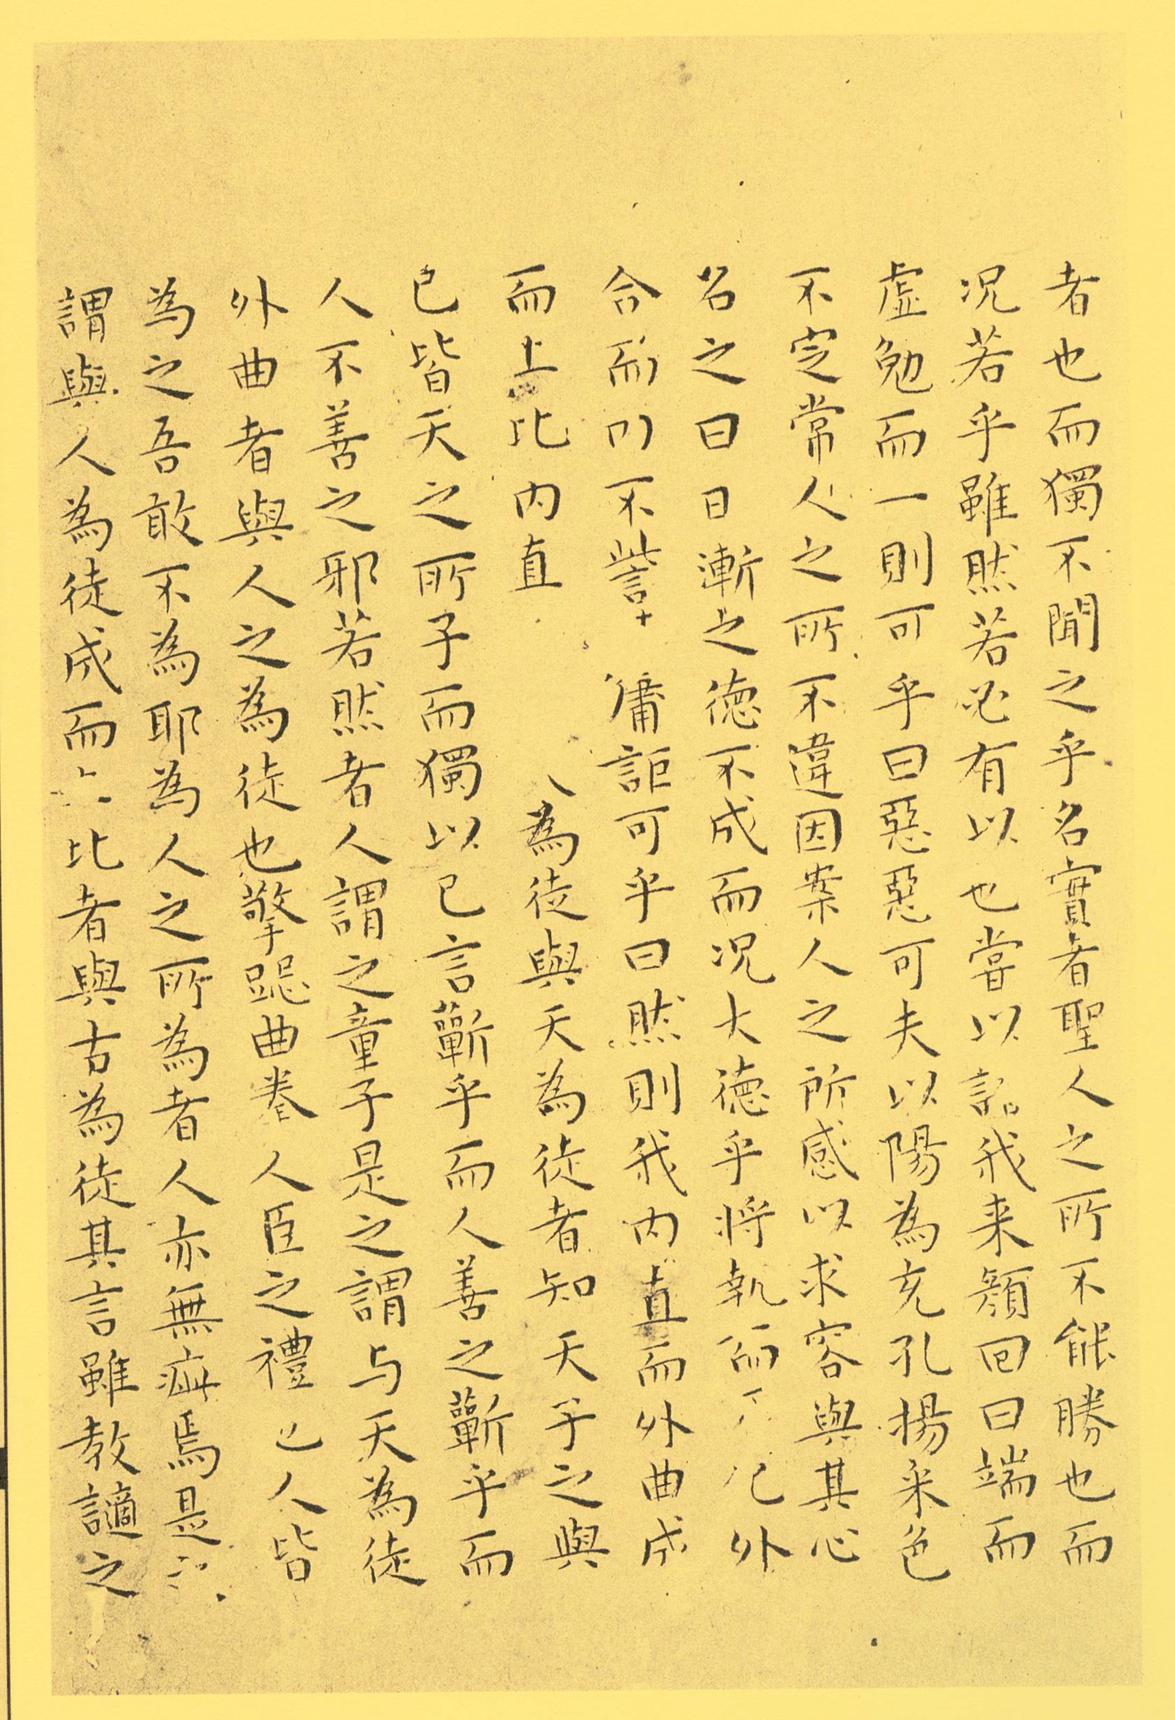 者也而獨不聞之乎名實者聖人之所不能勝也而
况若乎雖然若必有以也嘗以語我来顏回曰端而
虛勉而一則可乎曰惡惡可夫以陽為充孔揚采色
不定常人之所不違因案人之所感以求容與其心
名之曰日漸之德不成而况大德乎將執而不化外
合而內不訾其庸詎可乎曰然則我內直而外曲成
而上比內直為徒與天為徒者知天子之與
己皆天之所子而獨以己言蘄乎而人善之蘄乎而
人不善之邪若然者人謂之童子是之謂与天為徒
外曲者與人之為徒也擎跽曲拳人臣之禮也人皆
為之吾敢不為耶為人之所為者人亦無疵焉是之
謂與人為徒成而上比者與古為徒其言雖教讁之